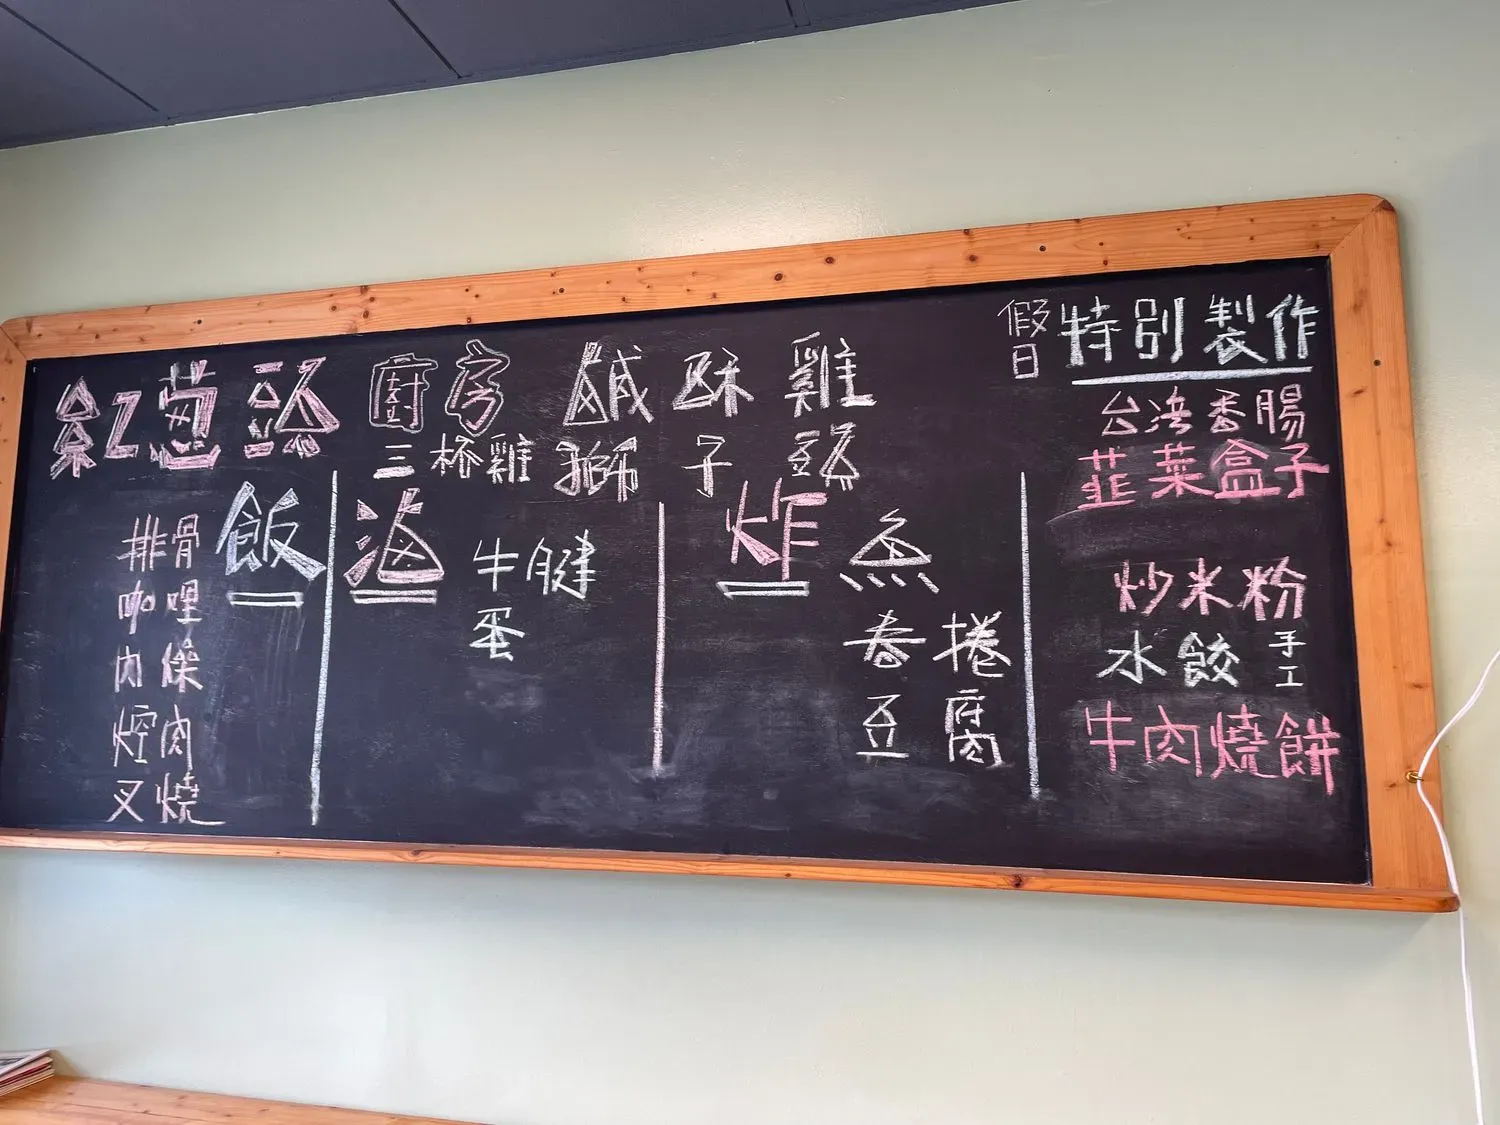 紅葱頭 廚房 鹹酥雞
三杯雞 獅子頭
飯
排骨
咖哩
肉燥
焢肉
叉燒
滷
牛腱
蛋
炸
魚
春捲
豆腐
假日 特別製作
台灣香腸
韮菜盒子
炒米粉
水餃 手工
牛肉燒餅